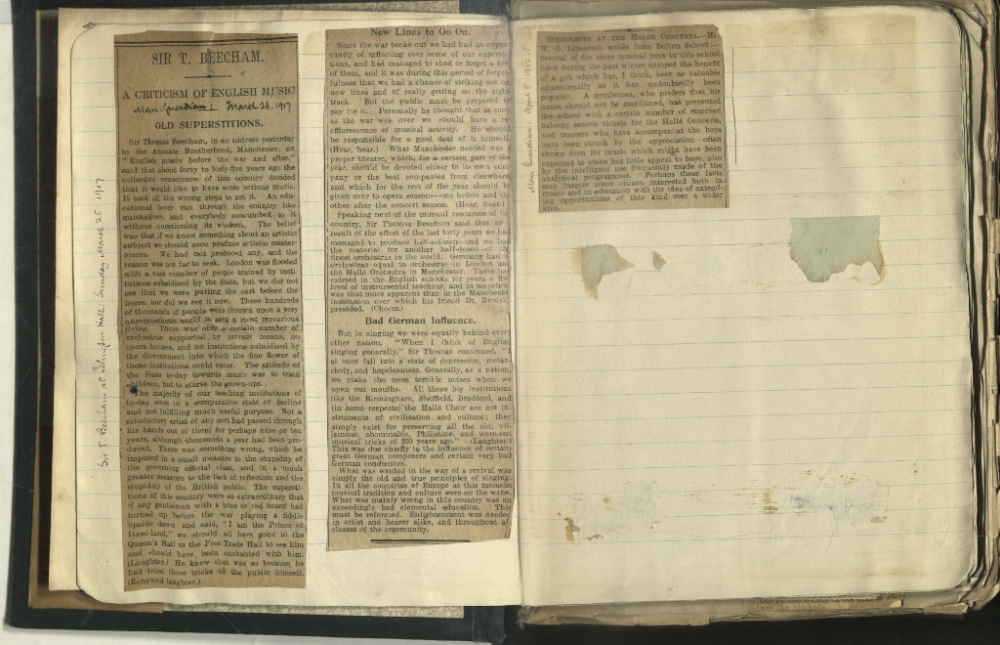 SIR T. BEECHAM.
A CRITICISM OF ENGLISH MUSIC
Man. Guardian March 26. 1917
OLD SUPERSTITIONS.
Sir Thomas Beecham, in an address yesterday
to the Ancoats Brotherhood, Manchester, on
"English music before the war and after,"
said that about forty to forty-five years ago the
collective conscience of this country decided
that it would like to have some serious music.
It took all the wrong steps to get it. An edu-
cational fever ran through the country like
quicksilver, and everybody succumbed to it
without questioning its wisdom. The belief
was that if we knew something about an artistic
subject we should soon produce artistic master-
pieces. We had not produced any, and the
reason was not far to seek. London was flooded
with a vast number of people trained by insti-
tutions subsidised by the State, but we did not
see that we were putting the cart before the
horse, nor did we see it now. These hundreds
of thousands of people were thrown upon a very
unsympathetic world to seek a most precarious
living. There was only a certain number of
orchestras supported by private means, no
opera-houses, and no institutions subsidised by
the Government into which the fine flower of
those institutions could enter. The attitude of
the State to-day towards music was to train
children, but to starve the grown-ups.
The majority of our teaching institutions of
to-day were in a comparative state of decline
and not fulfilling much useful purpose. Not a
satisfactory artist of any sort had passed through
his hands out of them for perhaps nine or ten
years, although thousands a year had been pro-
duced. There was something wrong, which he
imputed in a small measure to the stupidity of
the governing official class, and in a much
greater measure to the lack of reflection and the
stupidity of the British public. The supersti-
tions of this country were so extraordinary that
if any gentleman with a blue or red beard had
turned up before the war playing a fiddle
upside down and said, "I am the Prince of
-land," we should all have gone to the
Queen's Hall or the Free Trade Hall to see him
and should have been enchanted with him.
(Laughter.) He knew that was so because he
had tried these tricks on the public himself.
(Renewed laughter.)
Sir T. Beecham at Islington Hall Sunday March 25 1917
New Lines to Go On.
Since the war broke out we had had an oppor-
tunity of reflecting over some of our supersti-
tions, and had managed to shed or forget a few
of them, and it was during this period of forget-
fulness that we had a chance of striking out on
new lines and of really getting on the right
track. But the public must be prepared to
pay for it. Personally he thought that as soon
as the war was over we should have a re-
efflorescence of musical activity. He should
be responsible for a good deal of it himself.
(Hear, hear.) What Manchester needed was a
proper theatre, which, for a certain part of the
year, should be devoted either to its own com-
pany or the best companies from elsewhere
and which for the rest of the year should be
given over to opera seasons—one before and the
other after the concert season. (Hear, hear.)
Speaking next of the musical resources of the
country, Sir Thomas Beecham said that as a
result of the effort of the last forty years we had
managed to produce half-a-dozen—and we had
the material for another half-dozen—of the
finest orchestras in the world. Germany had no
orchestras equal to orchestras in London and
the Hallé Orchestra in Manchester. There had
existed in the English schools for years a fine
level of instrumental teaching, and in no school
was that more apparent than in the Manchester
institution over which his friend Dr. Brodsky
presided. (Cheers.)
Bad German Influence.
But in singing we were equally behind every
other nation. "When I think of English
singing generally," Sir Thomas continued, "I
at once fall into a state of depression, melan-
choly, and hopelessness. Generally, as a nation,
we make the most terrible noises when we
open our mouths. All these big institutions
like the Birmingham, Sheffield, Bradford, and
(in some respects) the Hallé Choir are not in-
struments of civilisation and culture; they
simply exist for preserving all the old, vil-
lainous, abominable, Philistine, and worn-out
musical tricks of 200 years ago." (Laughter.)
This was due chiefly to the influence of certain
great German composers and certain very bad
German conductors.
What was wanted in the way of a revival was
simply the old and true principles of singing.
In all the countries of Europe at this moment
musical tradition and culture were on the wane.
What was mainly wrong in this country was an
exceedingly bad elemental education. This
must be reformed. Enlightenment was needed
in artist and hearer alike, and throughout all
classes of the community.
Man Guardian. April 5
SCHOOLBOYS AT THE HALLÉ CONCERTS.—Mr.
W. G. Lipscomb writes from Bolton School:—
Several of the more musical boys in this school
have during the past winter enjoyed the benefit
of a gift which has, I think, been as valuable
educationally as it has undoubtedly been
popular. A gentleman, who prefers that his
name should not be mentioned, has presented
the school with a certain number of reserved
balcony season tickets for the Hallé Concerts,
and masters who have accompanied the boys
have been struck by the appreciation often
shown even for music which might have been
expected to make but little appeal to boys, also
by the intelligent use frequently made of the
analytical programmes. Perhaps these facts
may inspire some citizen interested both in
music and in education with the idea of extend-
ing opportunities of this kind over a wider
area.